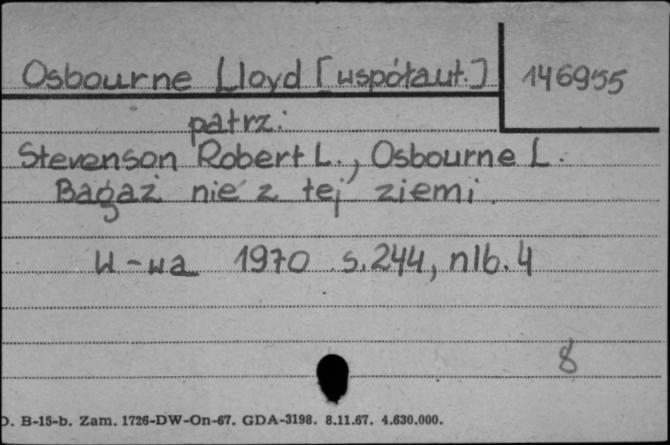 Osbourne Lloyd [współaut.] 146955
patrz:
Stevenson Robert L., Osbourne L.
Bagaż nie z tej ziemi.
W-wa 1970 s.244, nlb. 4
8
D. B-15-b. Zam. 1726-DW-On-67. GDA-3198. 8.11.67. 4.630.000.